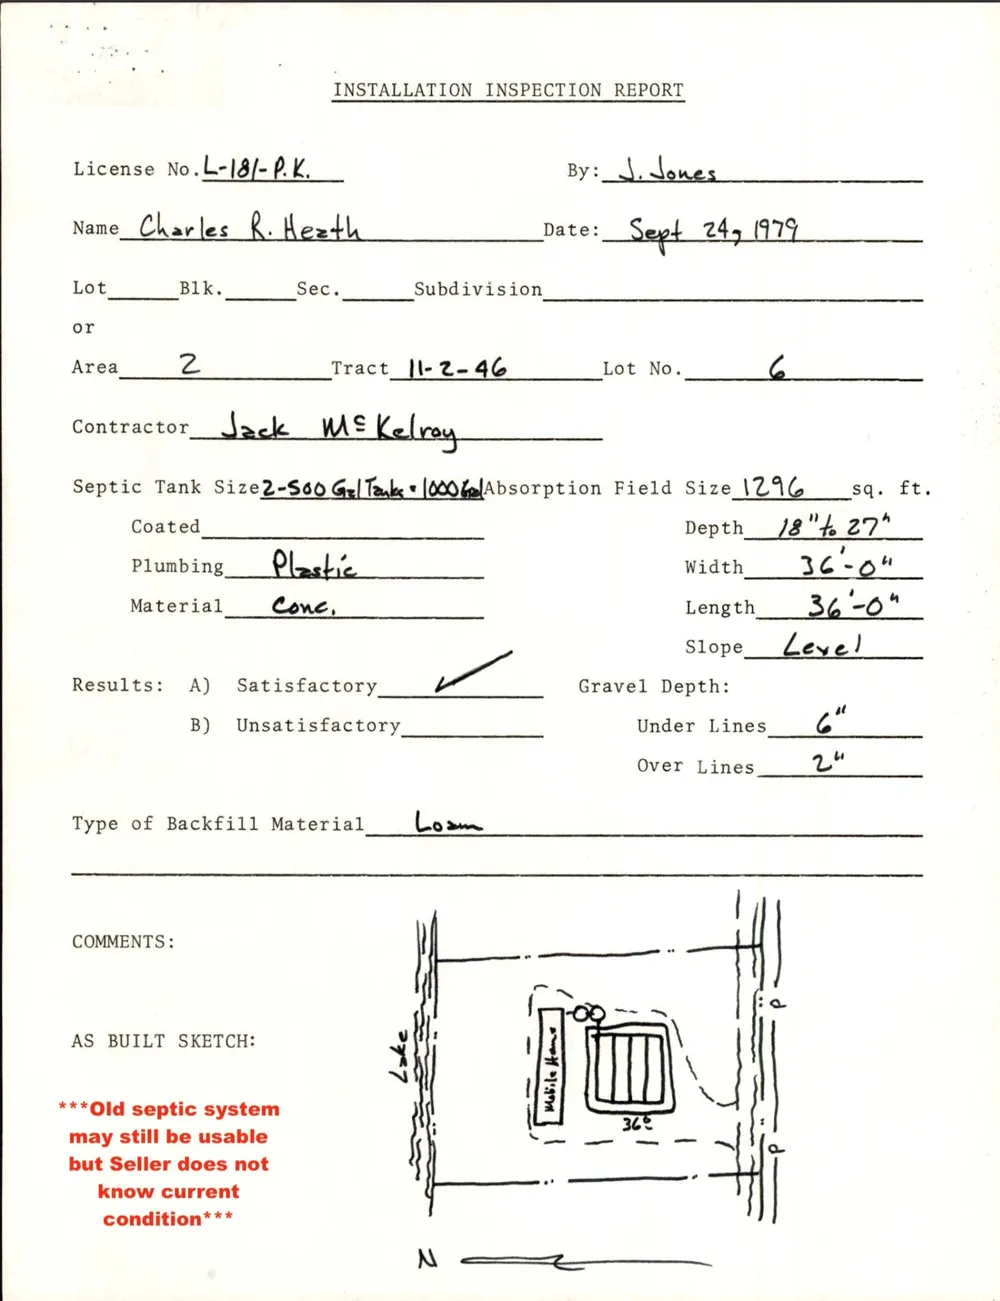 INSTALLATION INSPECTION REPORT
License No. L-181-P.K. By: J. Jones
Name Charles R. Heath Date: Sept 24, 1979
Lot Blk. Sec. Subdivision
or
Area 2 Tract 11-2-46 Lot No. 6
Contractor Jack McKelroy
Septic Tank Size 2-500 Gal Tanks = 1000 Gal Absorption Field Size 1296 sq. ft.
Coated Depth 18" to 27"
Plumbing Plastic Width 36'-0"
Material Conc. Length 36'-0"
Slope Level
Results: A) Satisfactory ✓ Gravel Depth:
B) Unsatisfactory Under Lines 6"
Over Lines 2"
Type of Backfill Material Loam
COMMENTS:
AS BUILT SKETCH:
Lake
Mobile Home
36'
P
P
***Old septic system
may still be usable
but Seller does not
know current
condition***
N